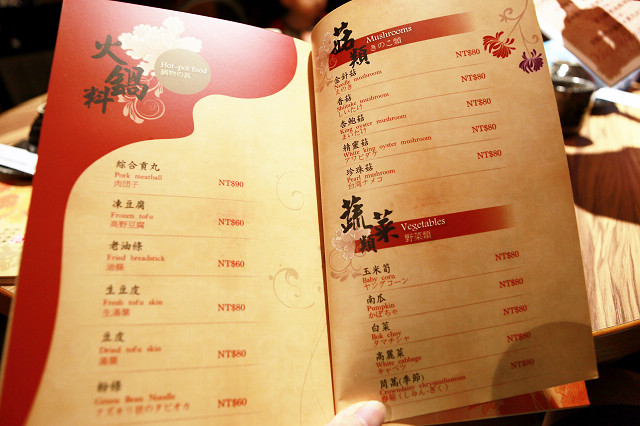 火鍋料
Hot-pot food
鍋物の具
綜合貢丸
Pork meatball
肉団子
NT$90
凍豆腐
Frozen tofu
高野豆腐
NT$60
老油條
Fried breadstick
油條
NT$60
生豆皮
Fresh tofu skin
生湯葉
NT$80
豆皮
Dried tofu skin
湯葉
NT$80
粉條
Green Bean Noodle
NT$60
菇類
Mushrooms
きのこ類
金針菇
Noodle mushroom
えのき
NT$80
香菇
Shiitake mushroom
しいたけ
NT$80
杏鮑菇
King oyster mushroom
まいたけ
NT$80
精靈菇
White king oyster mushroom
アワビダケ
NT$80
珍珠菇
Pearl mushroom
台湾ナメコ
NT$80
蔬菜類
Vegetables
野菜類
玉米筍
Baby corn
ヤングコーン
NT$80
南瓜
Pumpkin
かぼちゃ
NT$80
白菜
Bok choy
タマチシャ
NT$80
高麗菜
White cabbage
キャベツ
NT$80
茼萵(季節)
春菊(しゅん-ぎく)
NT$80